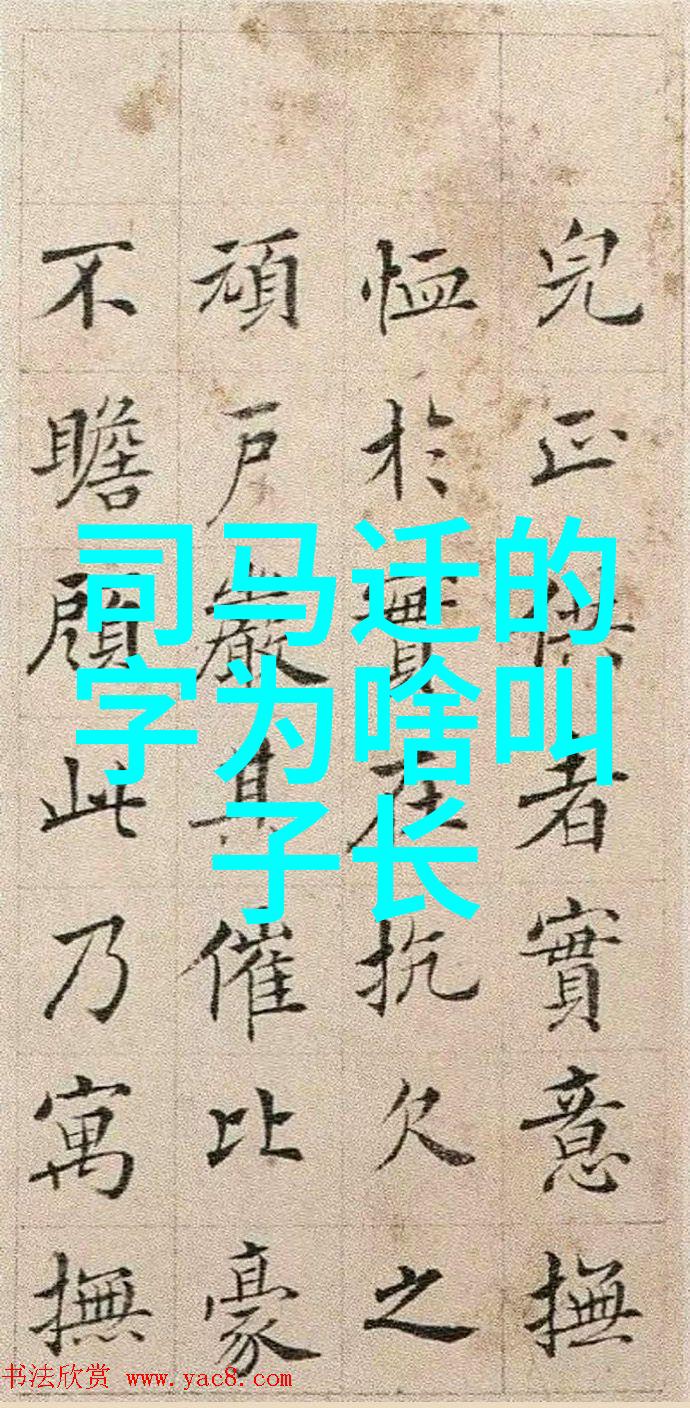 司马迁的
字为啥叫
子长
完正供者實意撫
恤於實在抗欠之
頑戶嚴其催比豪
不瞻顧此乃寓撫
书法欣赏 www.yac8.com